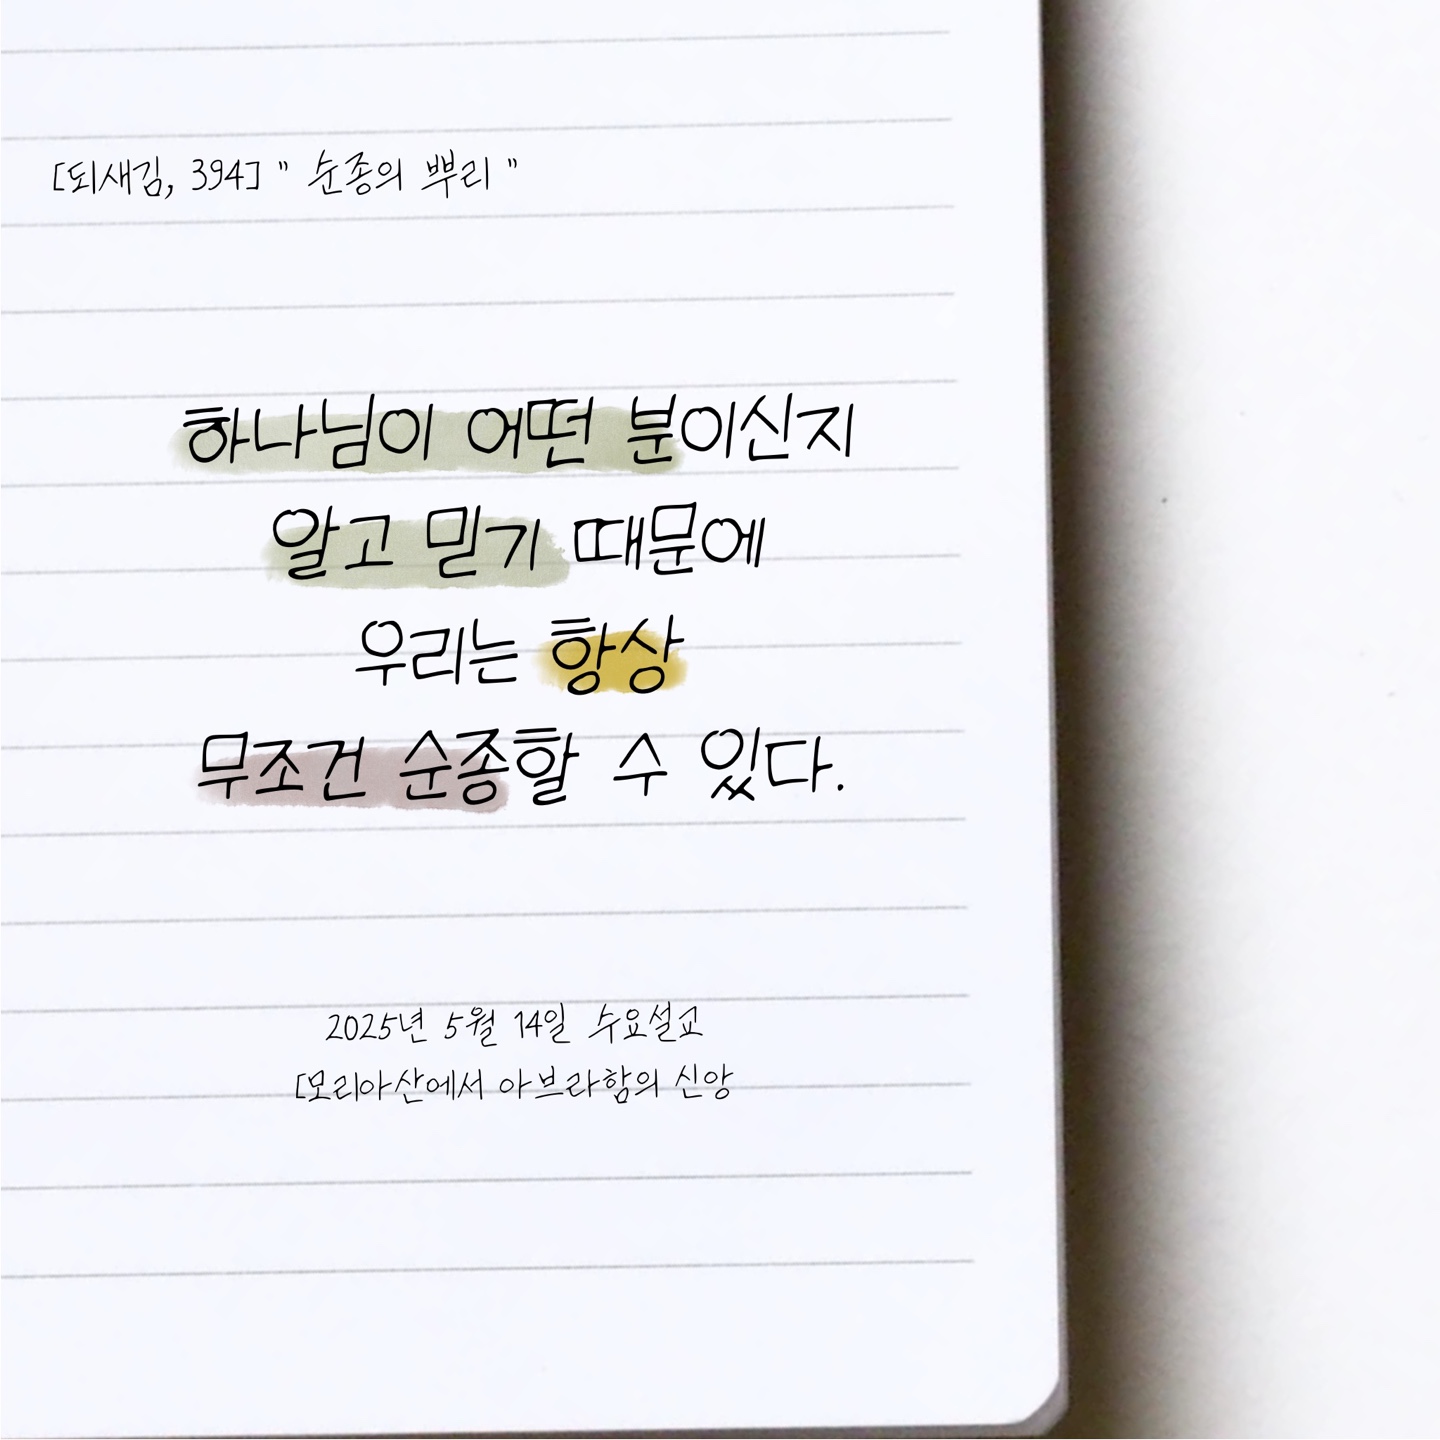 [되새김, 394] " 순종의 뿌리 "
하나님이 어떤 분이신지
알고 믿기 때문에
우리는 항상
무조건 순종할 수 있다.
2025년 5월 14일 수요설교
[모리아산에서 아브라함의 신앙